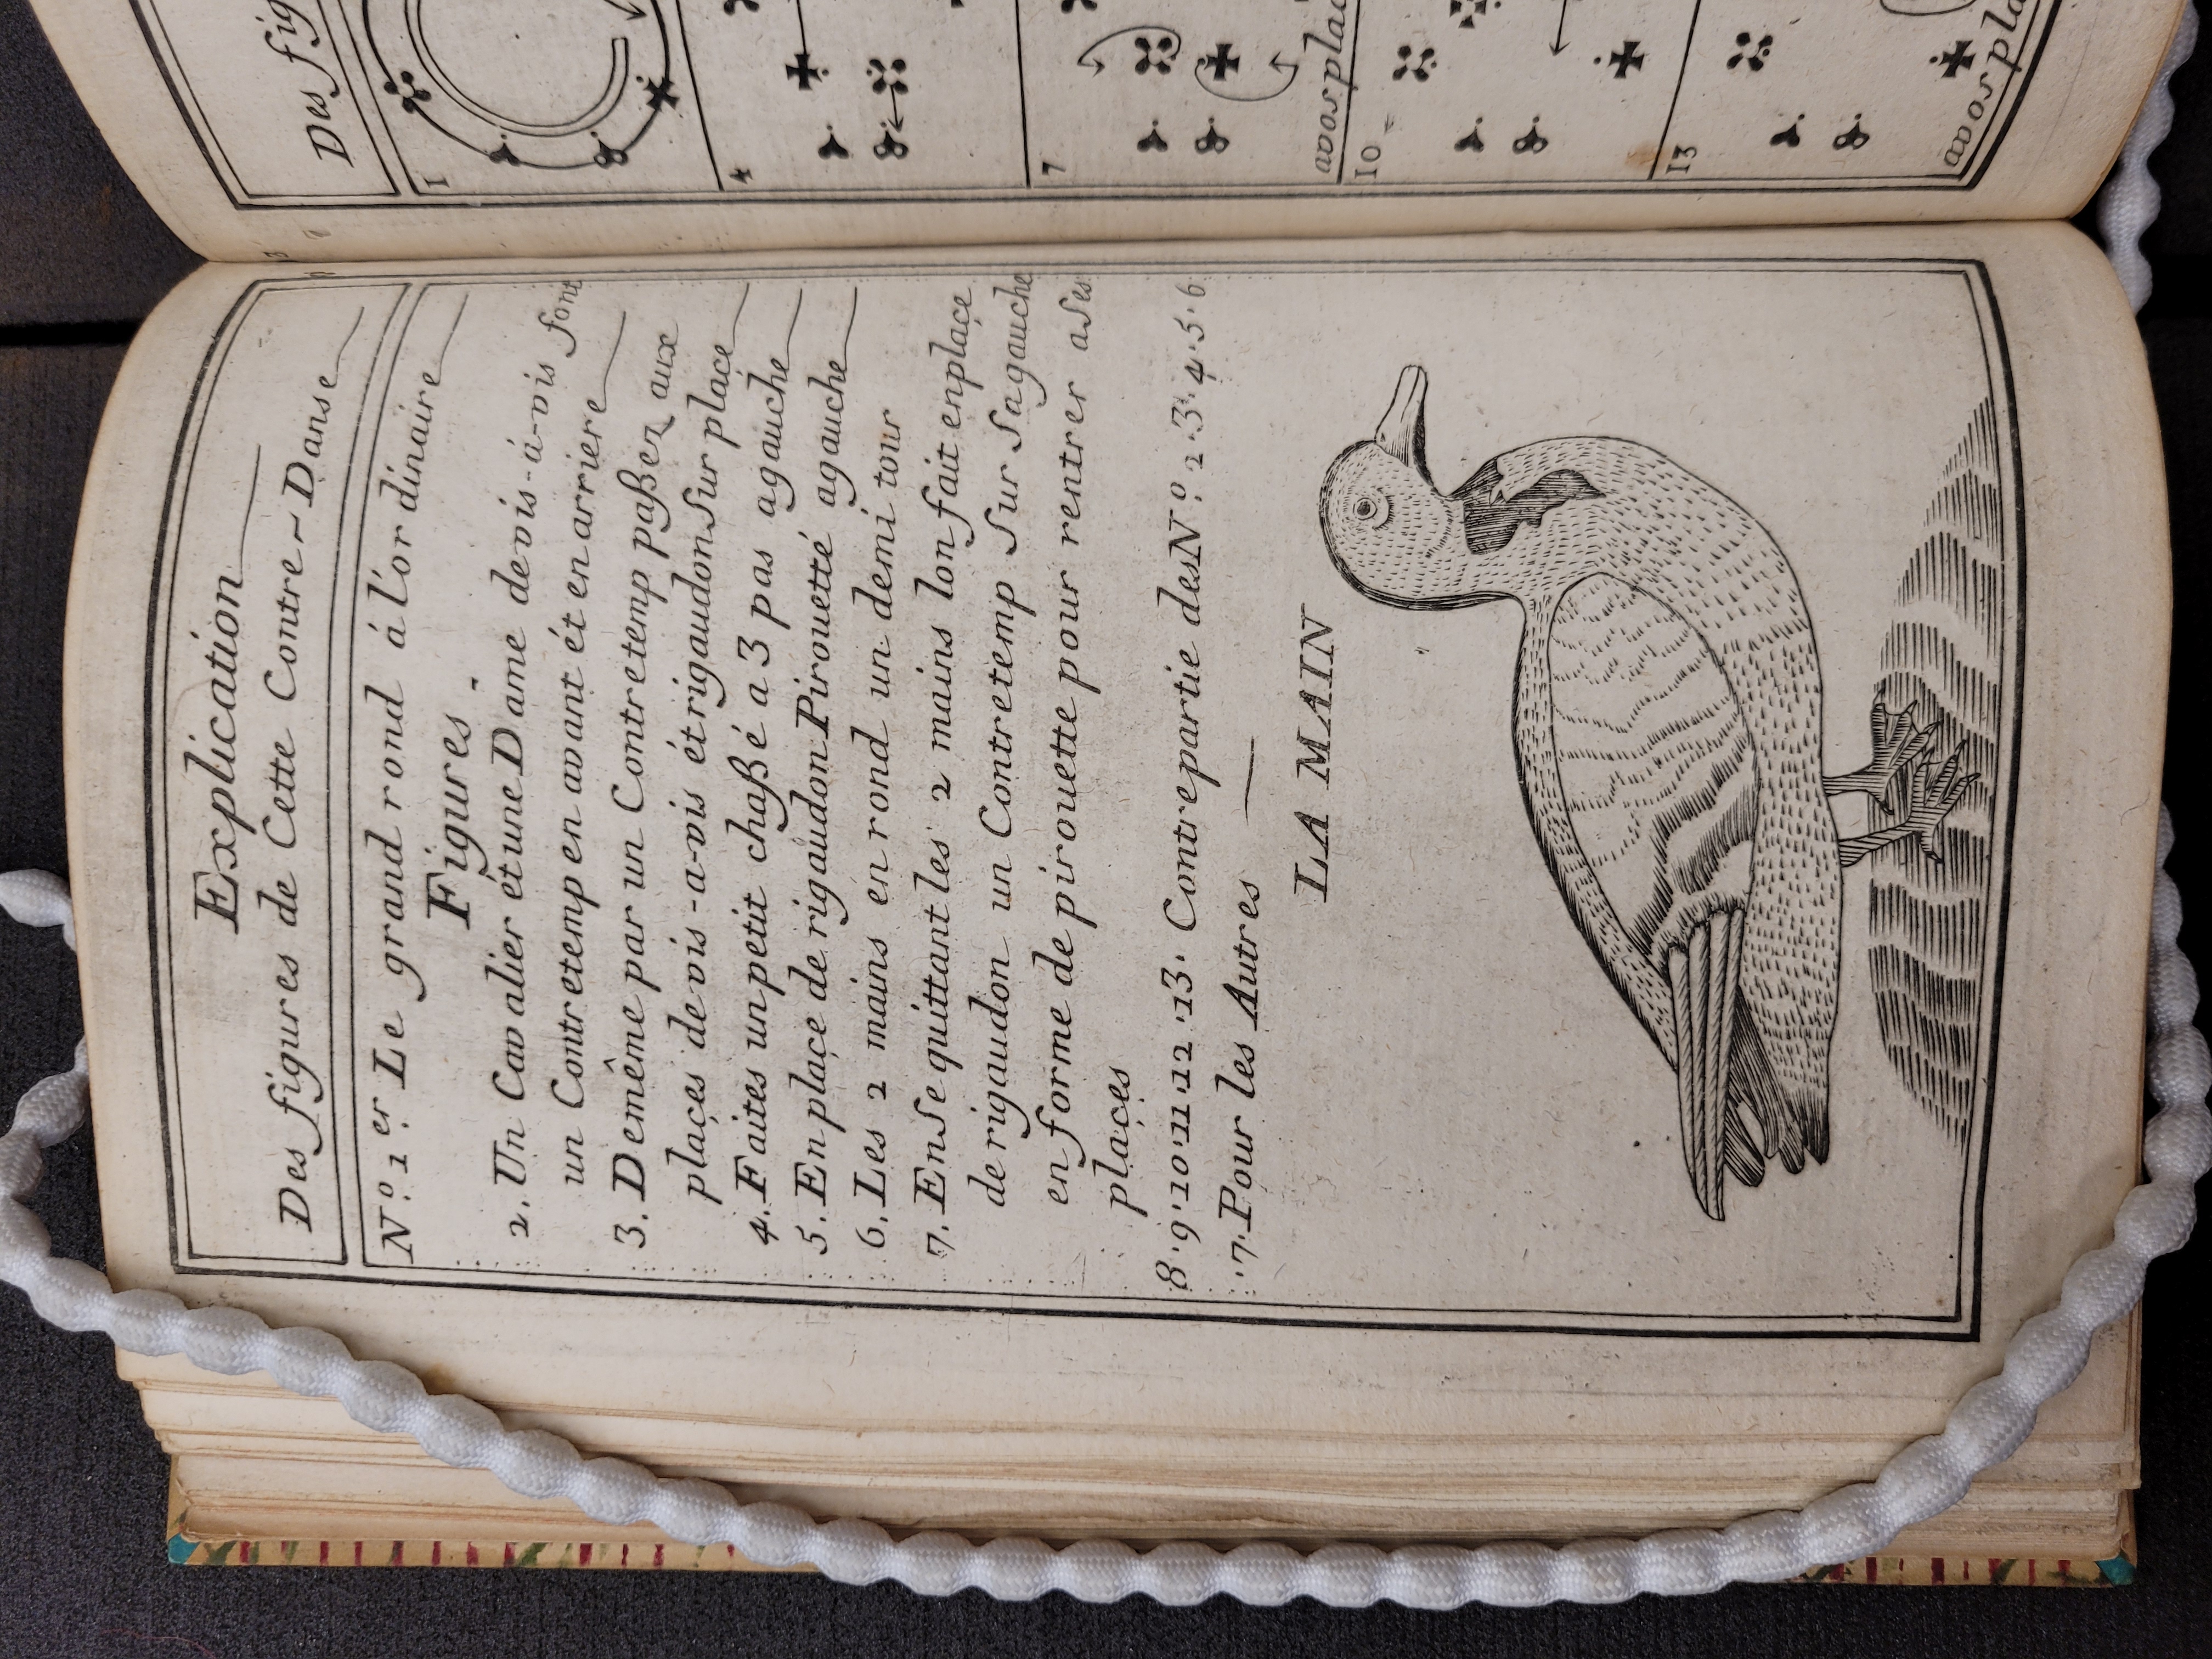 Explication
Des figures de Cette Contre-Danse
Nº. 1er Le grand rond á l'ordinaire
Figures
2. Un Cavalier et une Dame de vis-á-vis font
un Contretemp en avant ét en arriere
3. De même par un Contretemp paßez aux
plaçes de vis-a-vis ét rigaudon sur place
4. Faites un petit chaßé a 3 pas a gauche
5. En plaçe de rigaudon Pirouetté a gauche
6. Les 2 mains en rond un demi tour
7. En se quittant les 2 mains lon fait en plaçe
de rigaudon un Contretemp sur sa gauche
en forme de pirouette pour rentrer a ses
plaçes
8. 9. 10. 11. 12. 13. Contre partie des Nº. 2. 3. 4. 5. 6
. 7. Pour les Autres
LA MAIN
Des fig
1
4
7
avos plac
10
13
avos pla